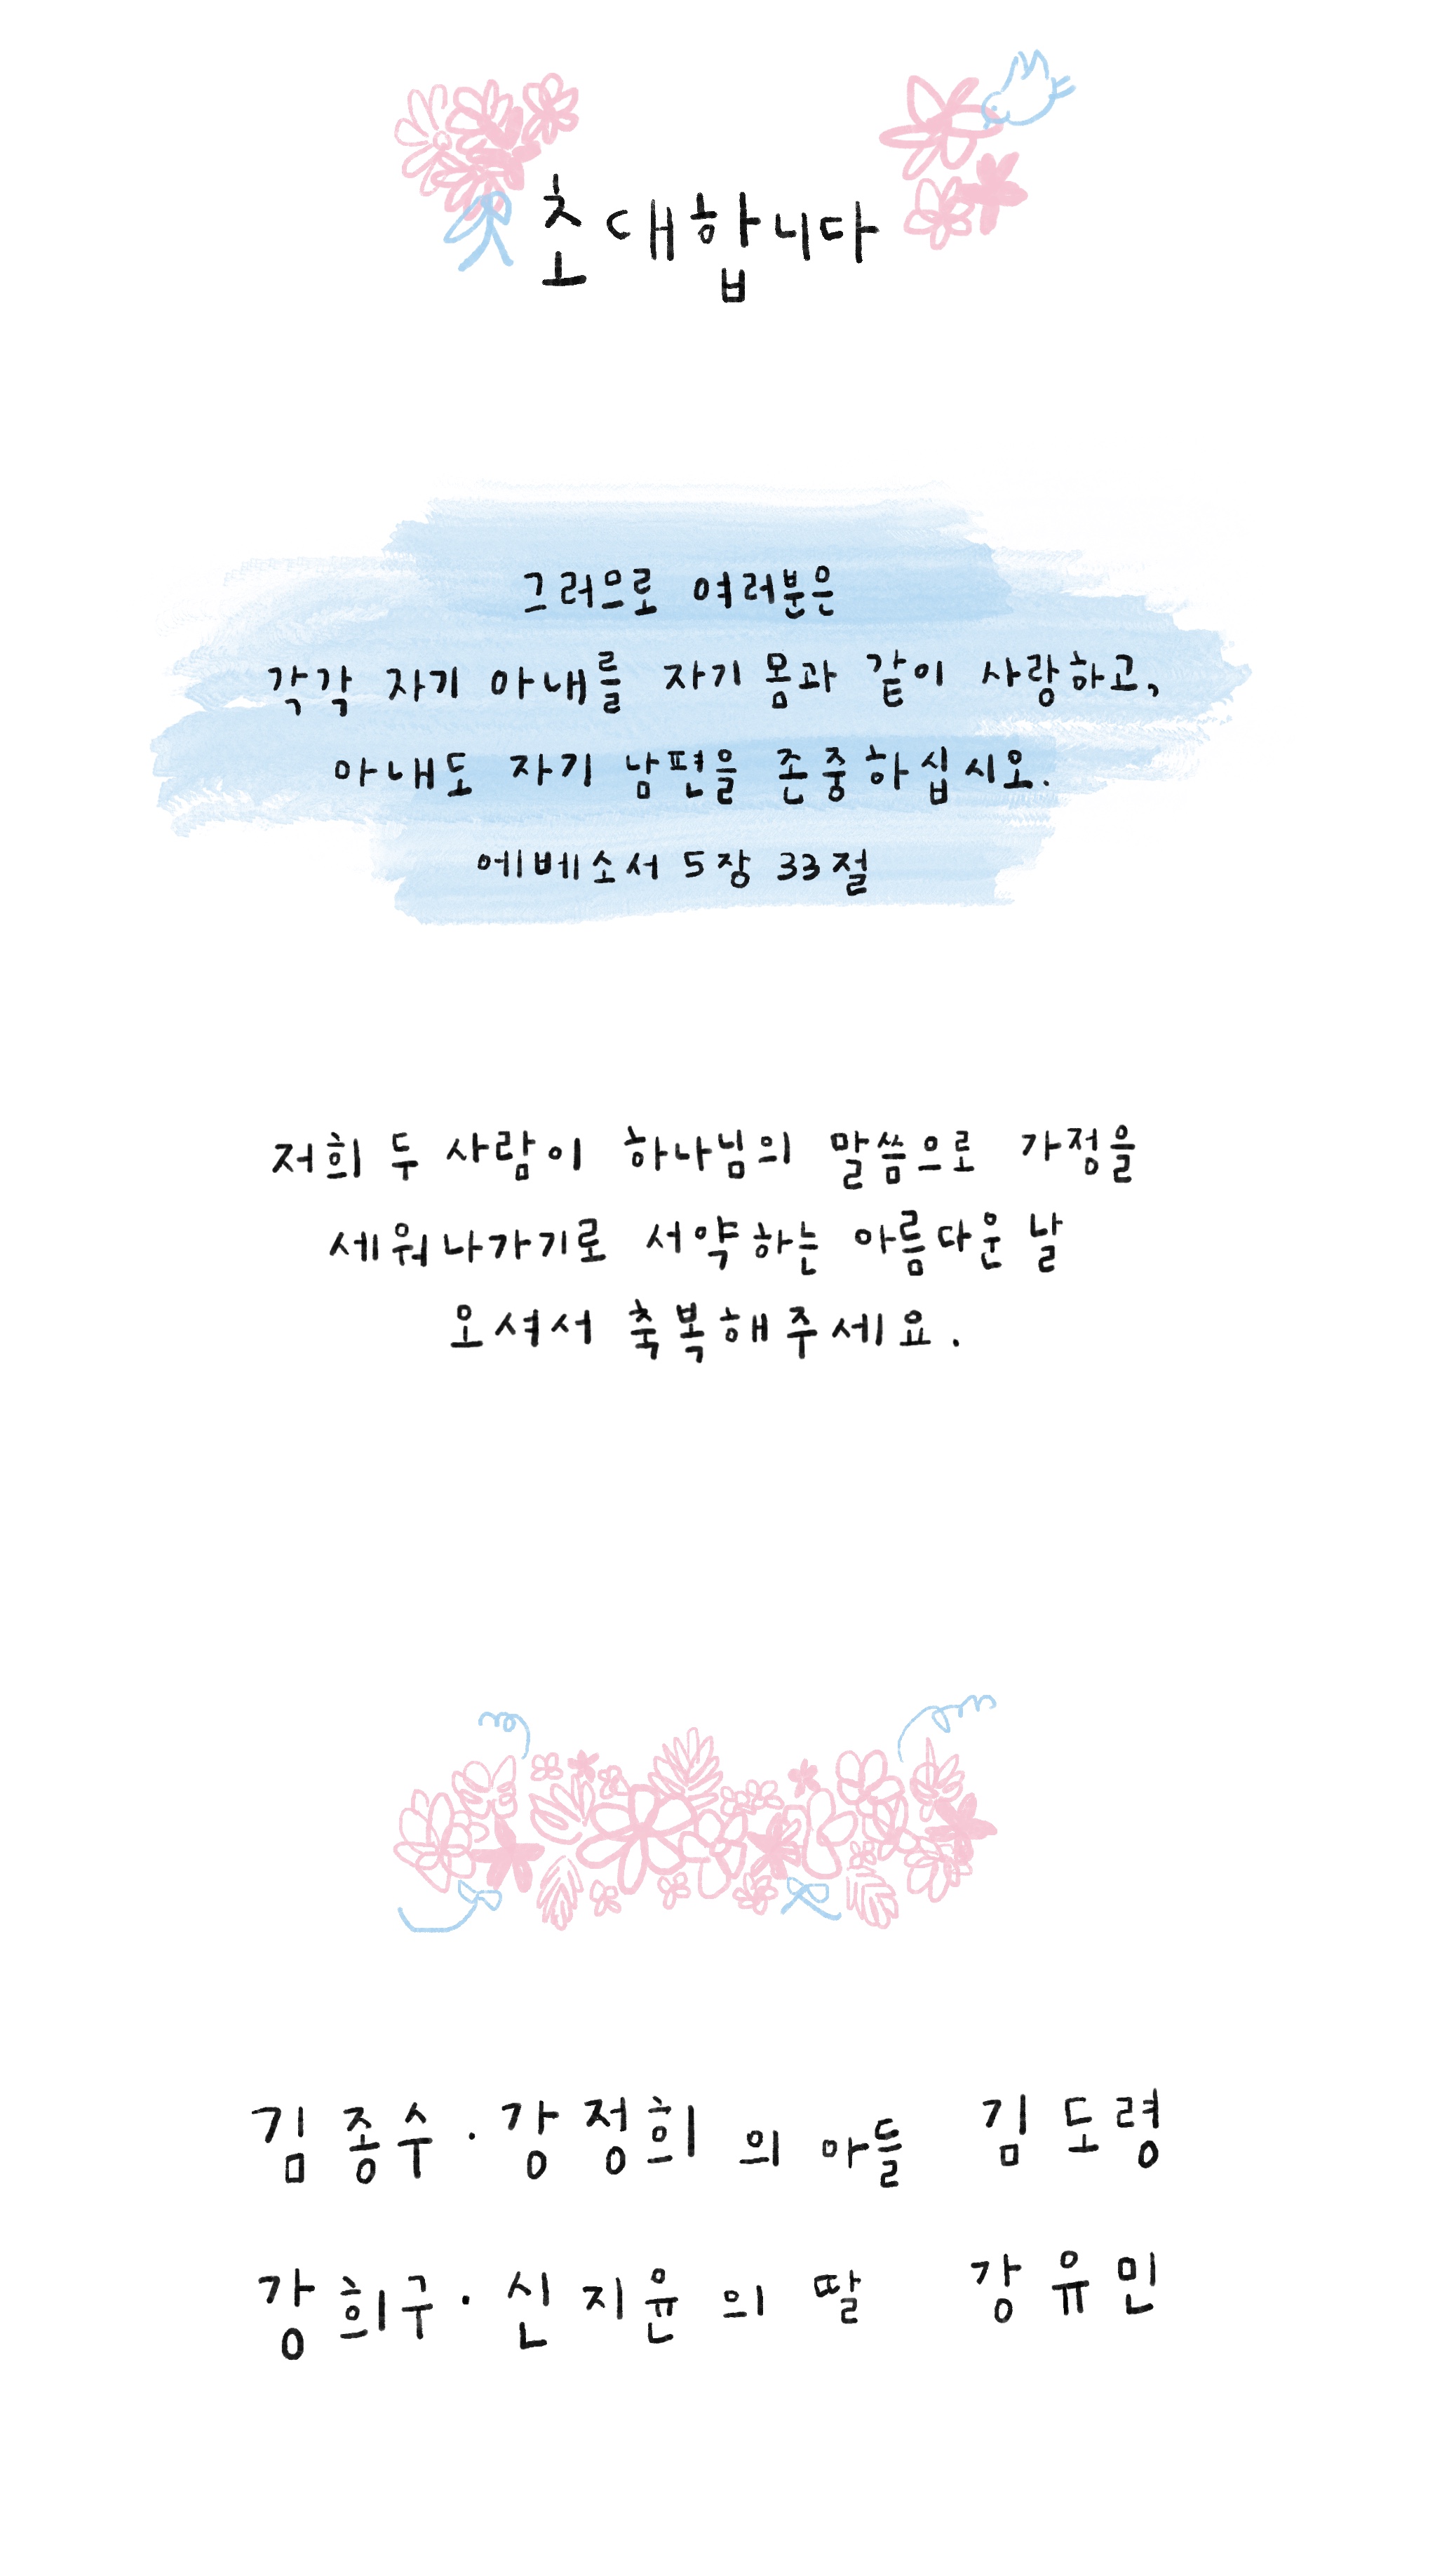 초대합니다
그러므로 여러분은
각각 자기 아내를 자기 몸과 같이 사랑하고,
아내도 자기 남편을 존중하십시오.
에베소서 5장 33절
저희 두 사람이 하나님의 말씀으로 가정을
세워나가기로 서약하는 아름다운 날
오셔서 축복해주세요.
김종수·강정희의 아들 김도령
강희구·신지윤의 딸 강유민